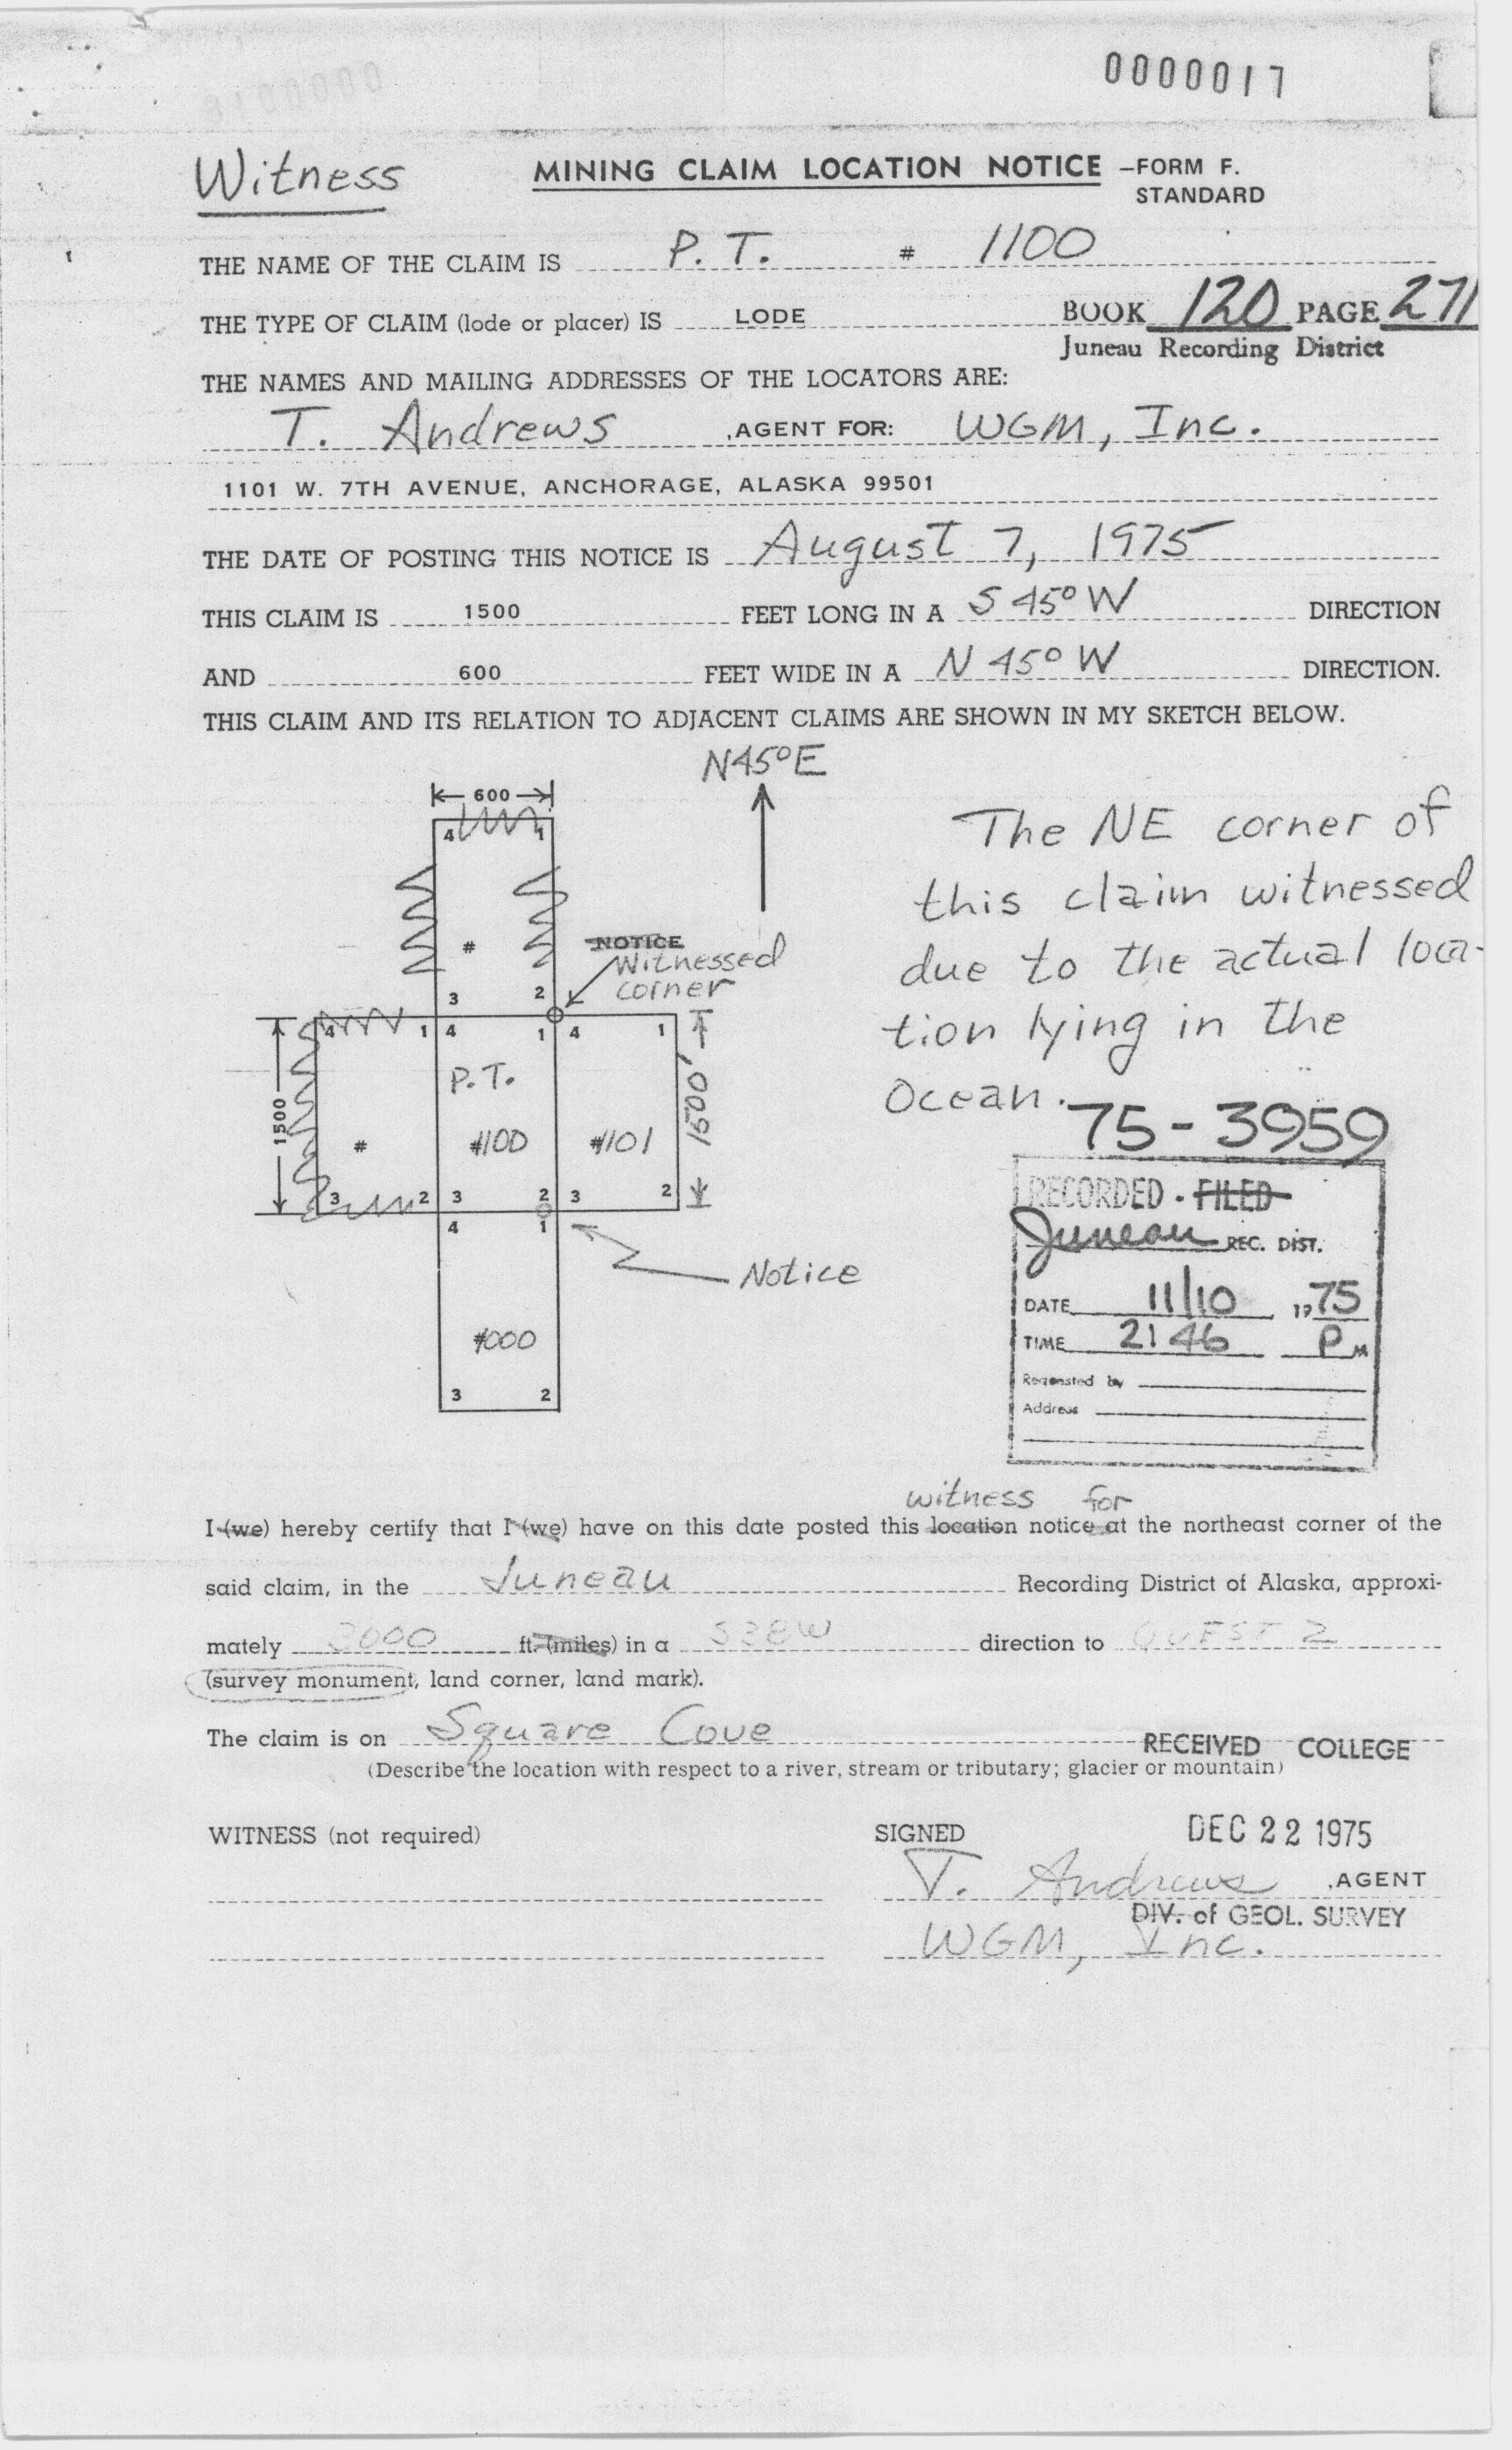 0000017
Witness
MINING CLAIM LOCATION NOTICE —FORM F.
STANDARD
THE NAME OF THE CLAIM IS P. T. # 1100
THE TYPE OF CLAIM (lode or placer) IS LODE
BOOK 120 PAGE 271
Juneau Recording District
THE NAMES AND MAILING ADDRESSES OF THE LOCATORS ARE:
T. Andrews ,AGENT FOR: WGM, Inc.
1101 W. 7TH AVENUE, ANCHORAGE, ALASKA 99501
THE DATE OF POSTING THIS NOTICE IS August 7, 1975
THIS CLAIM IS 1500 FEET LONG IN A S 45° W DIRECTION
AND 600 FEET WIDE IN A N 45° W DIRECTION.
THIS CLAIM AND ITS RELATION TO ADJACENT CLAIMS ARE SHOWN IN MY SKETCH BELOW.
N45°E
600
4 1
#
NOTICE
Witnessed
corner
3 2
4 1 4 1 4 1
P.T.
1500
# #1100 #1101
1500'
3 2 3 2 3 2
4 1
Notice
#1000
3 2
The NE corner of
this claim witnessed
due to the actual loca-
tion lying in the
Ocean.
75-3959
RECORDED - FILED
Juneau REC. DIST.
DATE 11/10 1975
TIME 2:46 P M
Requested by
Address
witness for
I (we) hereby certify that I (we) have on this date posted this location notice at the northeast corner of the
said claim, in the Juneau Recording District of Alaska, approxi-
mately 3000 ft. (miles) in a S38W direction to QUEST 2
(survey monument, land corner, land mark).
The claim is on Square Cove
RECEIVED COLLEGE
(Describe the location with respect to a river, stream or tributary; glacier or mountain)
WITNESS (not required)
SIGNED
DEC 22 1975
T. Andrews ,AGENT
DIV. of GEOL. SURVEY
WGM, Inc.